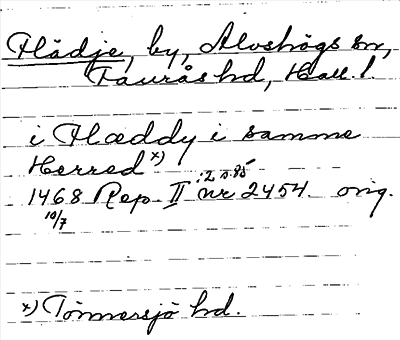 Flädje, by, Alvshögs sn,
Faurås hd, Hall. l.
i Flæddy i samme
Herred x)
: 2 s. 85
1468 Rep. II nr 2454. orig.
10/7
x) Tönnersjö hd.